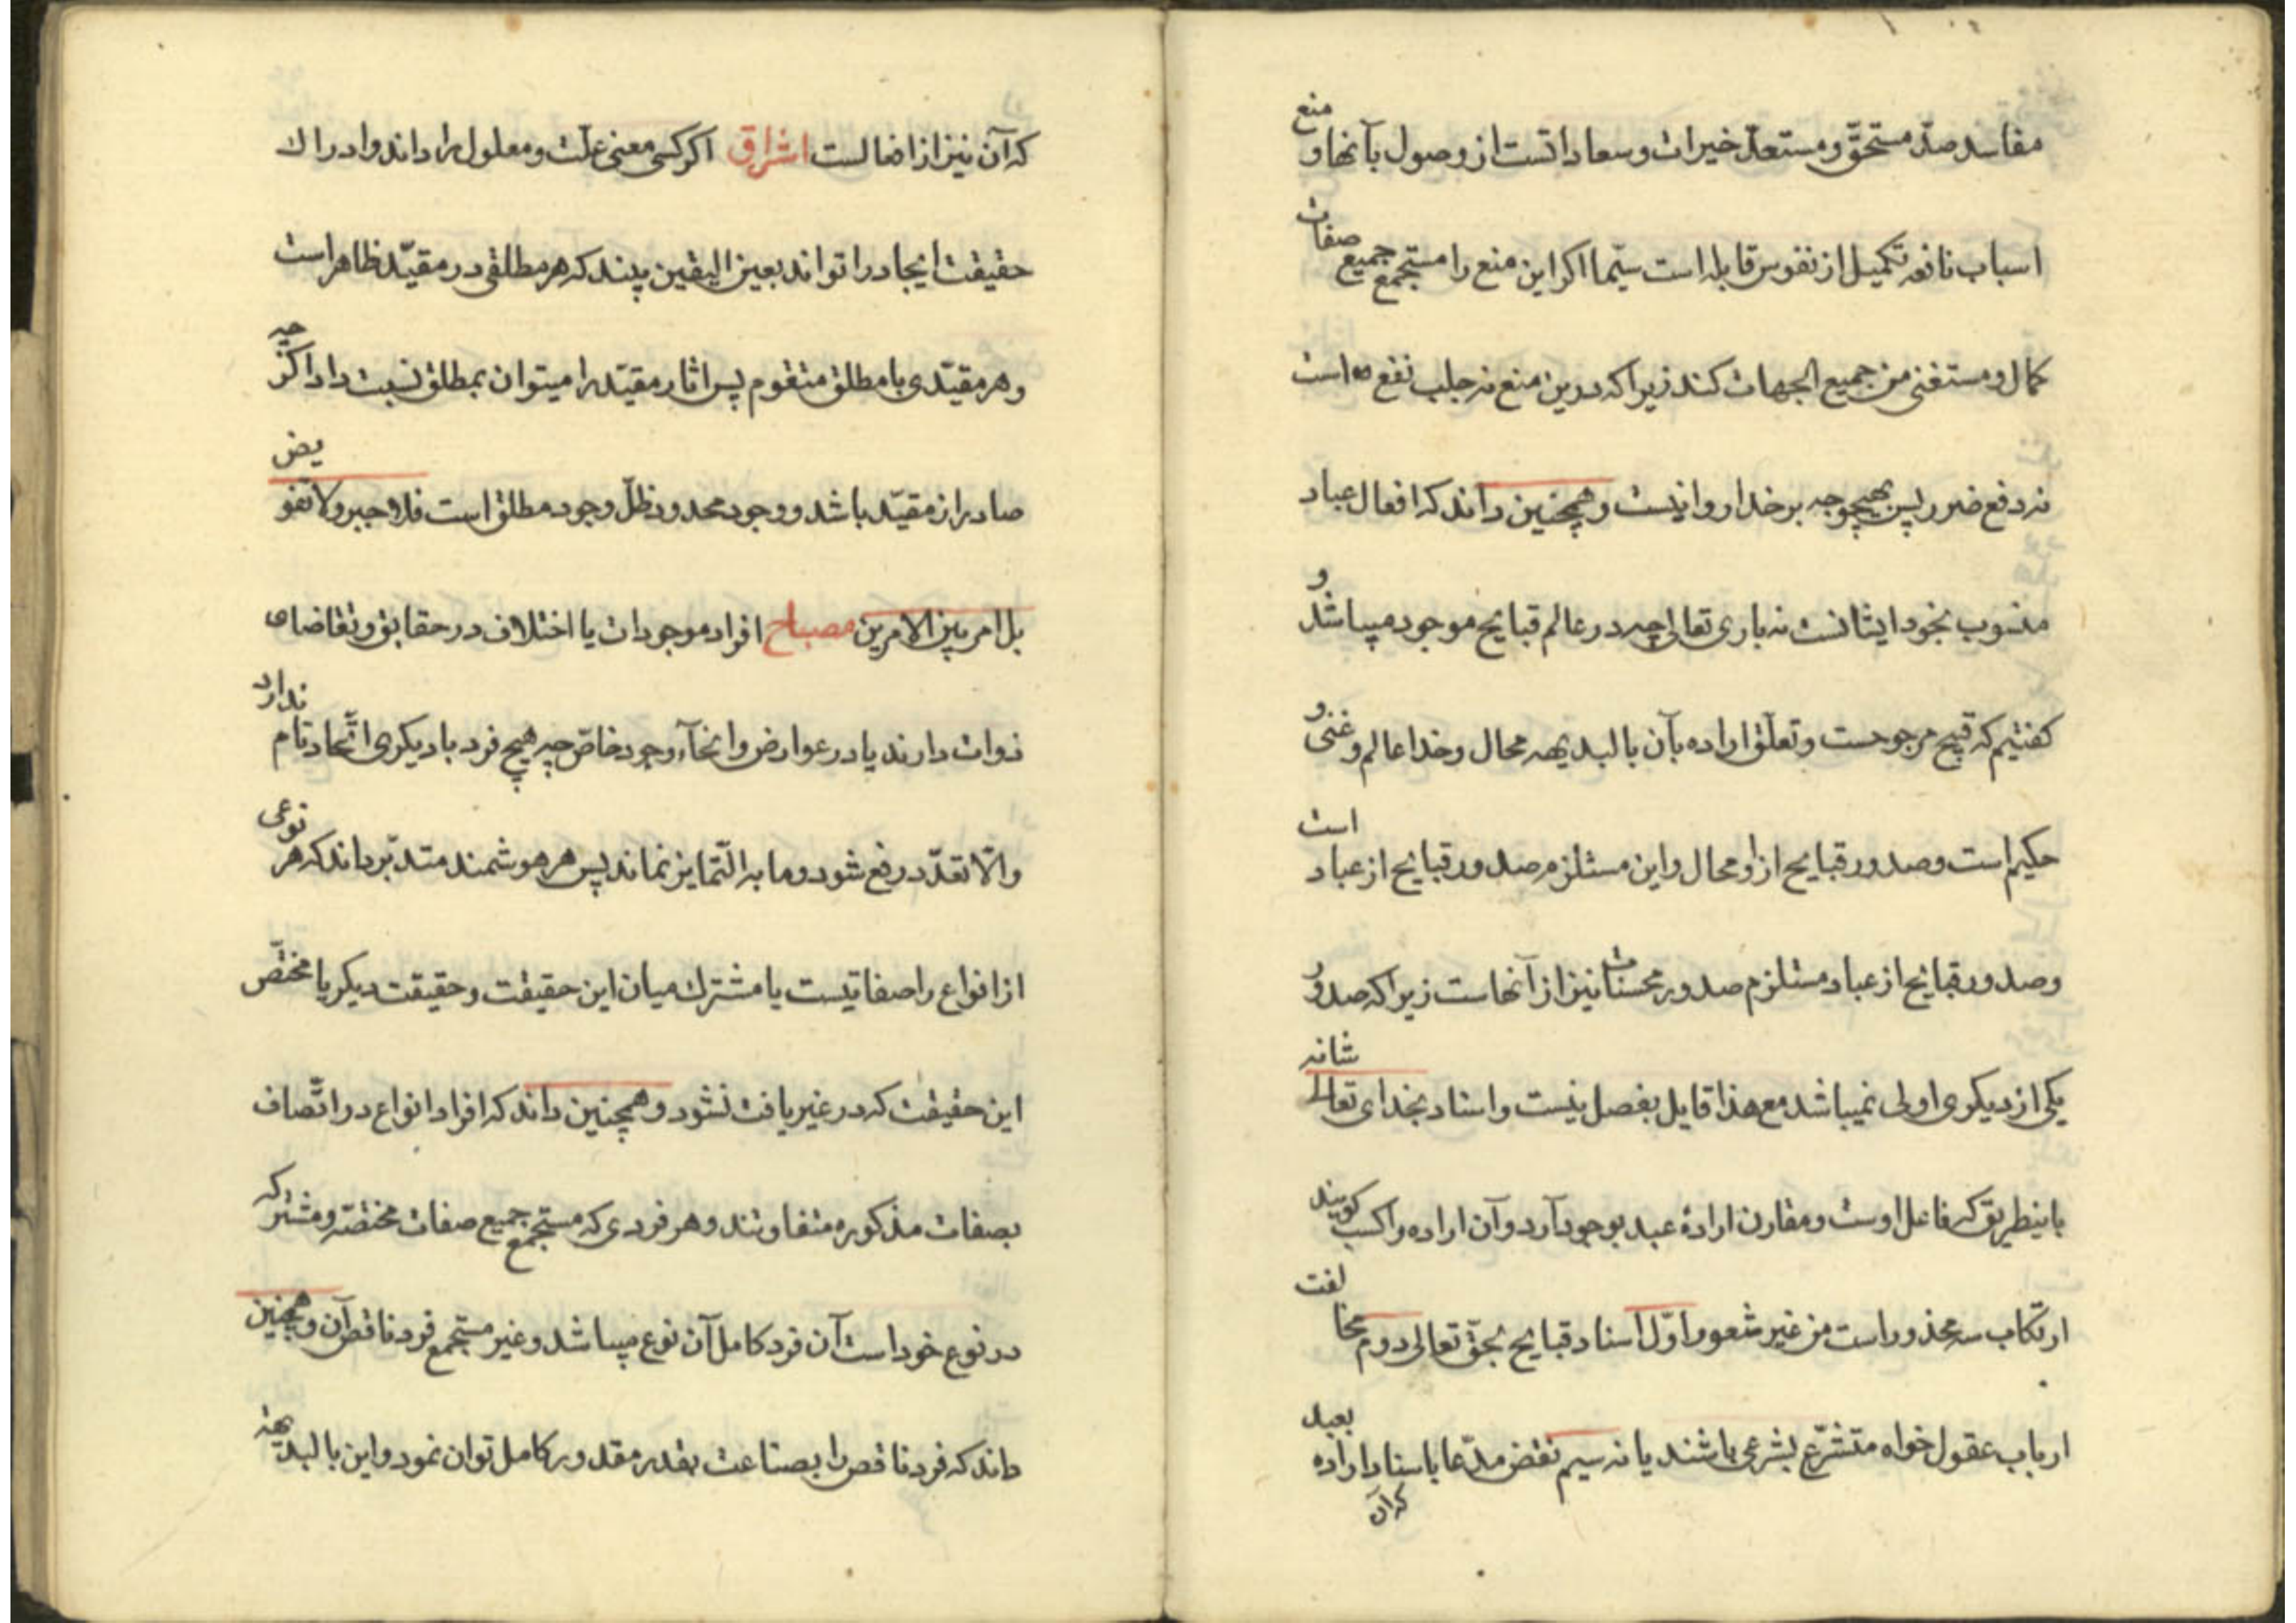 مفاسد صدّ مستحقّ و مستعدّ خیرات و سعاداتست از وصول بآنها و منع
اسباب نافعه تکمیل از نفوس قابله است سیّما اکر این منع را مستجمع جمیع صفات
کمال و مستغنی من جمیع الجهات کند زیرا که درین منع نه جلب نفع است
نه دفع ضرر پس بهیچوجه بر خدا روا نیست و همچنین داند که افعال عباد
منسوب بخود ایشانست نه باری تعالی چه در عالم قبایح موجود میباشد و
کفتیم که قبیح مرجوحست و تعلّق اراده بآن بالبدیهه محال و خدا عالم و غنی و
حکیم است و صدور قبایح از او محال و این مستلزم صدور قبایح از عباد است
و صدور قبایح از عباد مستلزم صدور محسنات نیز از آنهاست زیرا که صدور
یکی از دیکری اولی نمیباشد مع هذا قایل بفصل نیست و اسناد بخدای تعالی شانه
باینطریق که فاعل اوست و مقارن ارادهٔ عبد بوجود آرد و آن اراده را کسب کویند
ارتکاب سه محذور است من غیر شعور اوّل اسناد قبایح بحقّ تعالی دوم مخالفت
ارباب عقول خواه متشرّع بشرعی باشند یا نه سیم نقض مدّعا باسناد اراده بعبد
که آن
که آن نیز از افعالست اشراق اکر کسی معنی علّت و معلول را داند و ادراک
حقیقت ایجاد را تواند بعین الیقین بیند که هر مطلقی در مقیّد ظاهر است
و هر مقیّدی با مطلق متقوم پس اثار مقیّد را میتوان بمطلق نسبت داد اکرچه
صادر از مقیّد باشد و وجود محدود ظلّ وجود مطلق است فلا جبر و لا تفویض
بل امر بین الامرین مصباح افراد موجودات یا اختلاف در حقایق و تقاضای
ذوات دارند یا در عوارض و انحآء وجود خاصّ چه هیچ فرد با دیکری اتّحاد تام ندارد
و الّا تعدّد رفع شود و ما به التّمایز نماند پس هر هوشمند متدبّر داند که هر نوعی
از انواع را صفاتیست یا مشترک میان این حقیقت و حقیقت دیکر یا مختصّ
این حقیقت که در غیر یافت نشود و همچنین داند که افراد انواع در اتّصاف
بصفات مذکوره متفاوتند و هر فردی که مستجمع جمیع صفات مختصّه و مشترکه
در نوع خود است آن فرد کامل آن نوع میباشد و غیر مستجمع فرد ناقص آن و همچنین
داند که فرد ناقص را بصناعت بقدر مقدور کامل توان نمود و این بالبدیهه